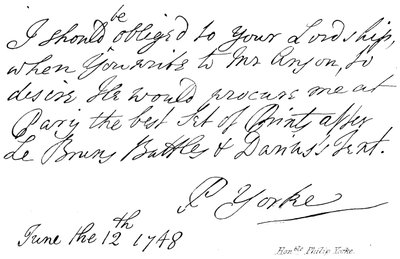 I should be obliged to Your Lordship,
when You write to Mr Anson, to
desire He would procure me at
Paris the best Set of Prints after
Le Bruns Battles & Darius's Tent.
P Yorke
June the 12th 1748
Honble Philip Yorke.